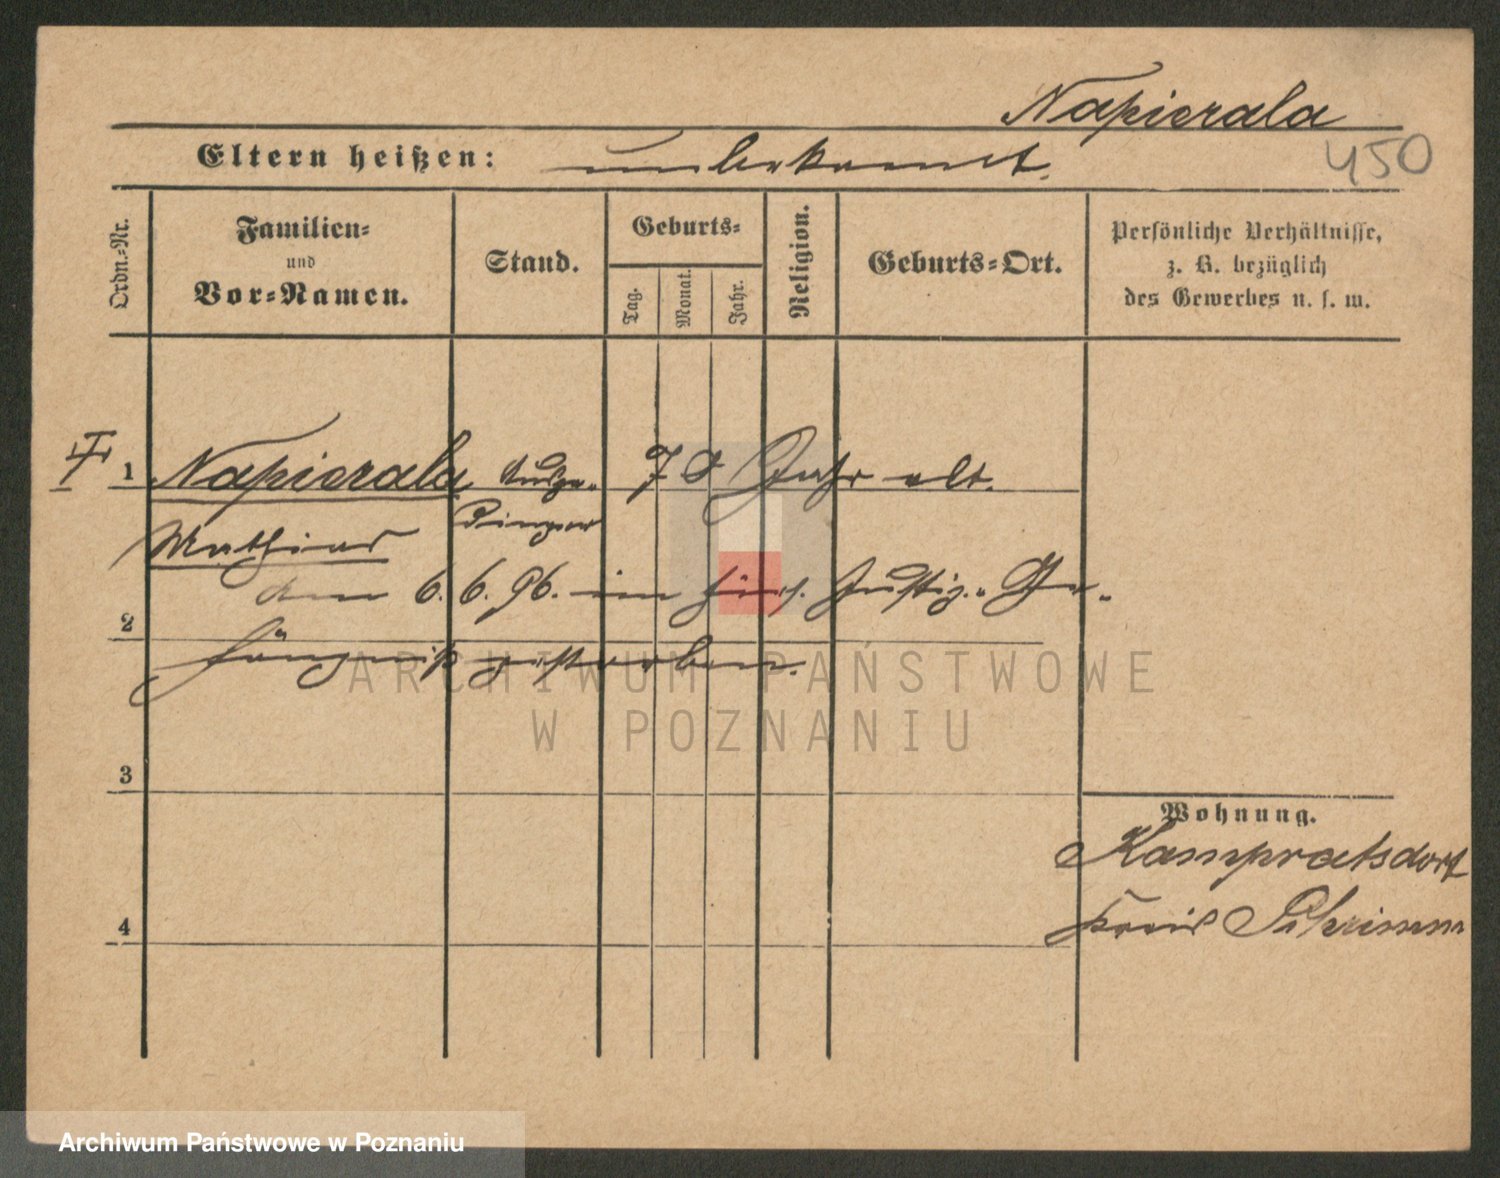 Napierala
450
Eltern heißen: unbekannt.
Ordn.-Nr.
Familien-
und
Vor-Namen.
Stand.
Geburts-
Tag.
Monat.
Jahr.
Religion.
Geburts-Ort.
Persönliche Verhältnisse,
z. B. bezüglich
des Gewerbes u. s. w.
1 Napierala Ausge- 70 Jahr alt.
Mathias dinger
am 6.6.96. im hies. Justiz-Ge-
2
fängniß gestorben.
ARCHIWUM PAŃSTWOWE
W POZNANIU
3
Wohnung.
Kampratsdorf
4
Kreis Schrimm
Archiwum Państwowe w Poznaniu